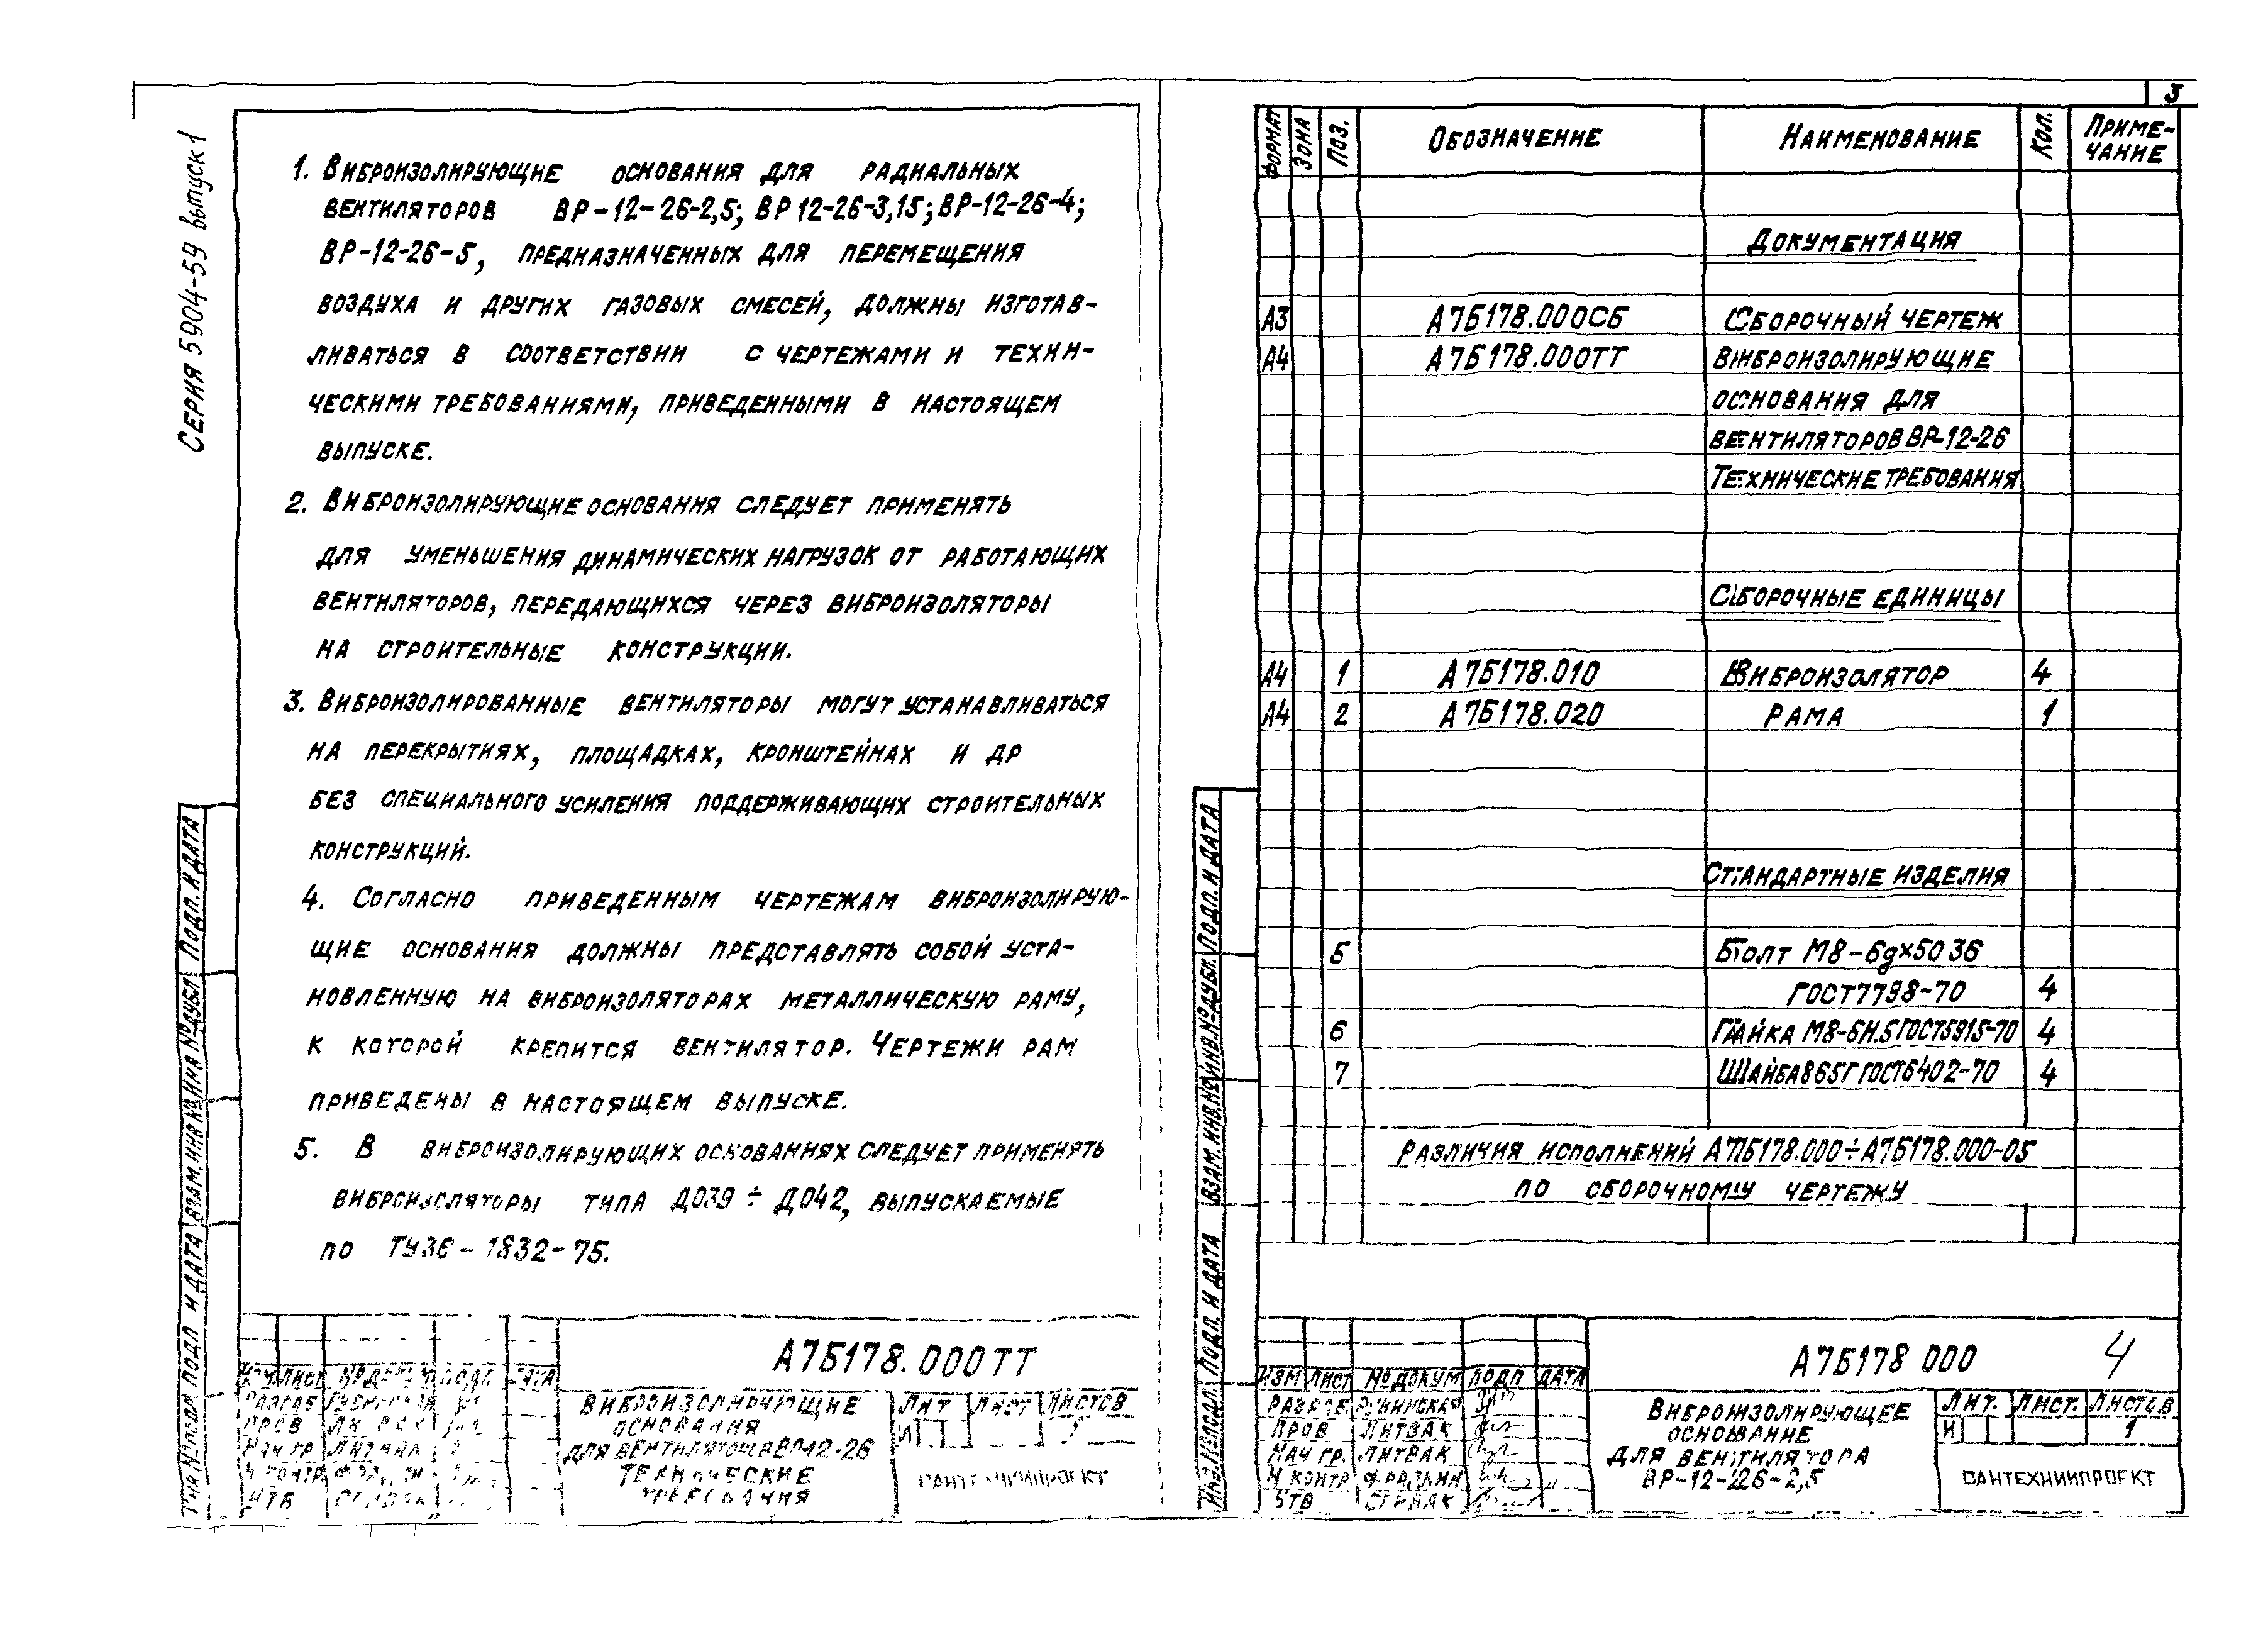 3
Серия 5904-59 выпуск 1
1. Виброизолирующие основания для радиальных
вентиляторов ВР-12-26-2,5; ВР 12-26-3,15; ВР-12-26-4;
ВР-12-26-5, предназначенных для перемещения
воздуха и других газовых смесей, должны изготав-
ливаться в соответствии с чертежами и техни-
ческими требованиями, приведенными в настоящем
выпуске.
2. Виброизолирующие основания следует применять
для уменьшения динамических нагрузок от работающих
вентиляторов, передающихся через виброизоляторы
на строительные конструкции.
3. Виброизолированные вентиляторы могут устанавливаться
на перекрытиях, площадках, кронштейнах и др
без специального усиления поддерживающих строительных
конструкций.
4. Согласно приведенным чертежам виброизолирую-
щие основания должны представлять собой уста-
новленную на виброизоляторах металлическую раму,
к которой крепится вентилятор. Чертежи рам
приведены в настоящем выпуске.
5. В виброизолирующих основаниях следует применять
виброизоляторы типа Д039 ÷ Д042, выпускаемые
по ТУ36-1832-75.
Подп. и дата
Инв № дубл
Взам. инв №
Подп и дата
А7Б178.000ТТ
Лист Подп. Дата
Виброизолирующие
основания
для вентиляторов ВР-12-26
Технические
требования
Лит Лист Листов
И
Разраб
Пров
Нач гр
Н контр
Утв
Сантехниипроект
Формат Зона Поз. Обозначение Наименование Кол. Приме-
чание
Документация
А3 А7Б178.000СБ Сборочный чертеж
А4 А7Б178.000ТТ Виброизолирующие
основания для
вентиляторов ВР-12-26
Технические требования
Сборочные единицы
А4 1 А7Б178.010 Виброизолятор 4
А4 2 А7Б178.020 Рама 1
Стандартные изделия
5 Болт М8-6gх50 36
ГОСТ7798-70 4
6 Гайка М8-6Н.5 ГОСТ5915-70 4
7 Шайба 8 65Г ГОСТ6402-70 4
Различия исполнений А7Б178.000÷А7Б178.000-05
по сборочному чертежу
Подп. и дата
Инв. № дубл.
Взам. инв. №
Подп. и дата
Инв. № подл.
А7Б178 000 4
Изм Лист № докум Подп Дата
Разраб. Рувинская
Пров Литвак
Нач гр. Литвак
Н контр Фрадкин
Утв Спивак
Виброизолирующее
основание
для вентилятора
ВР-12-26-2,5
Лит. Лист. Листов
И 1
Сантехниипроект